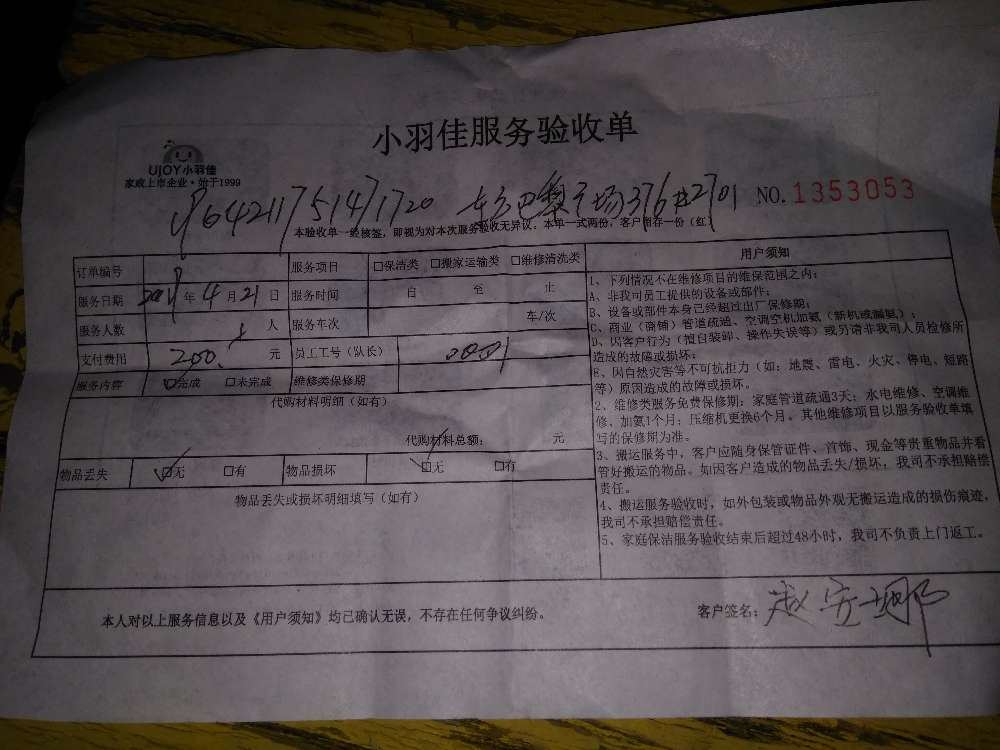 小羽佳服务验收单
UJOY小羽佳
家政上市企业·始于1999
6421175141720 376#2701
NO. 1353053
本验收单一经核签,即视为对本次服务验收无异议。本单一式两份,客户留存一份(红)
订单编号 服务项目 □保洁类 □搬家运输类 □维修清洗类
服务日期 年 4 月 21 日 服务时间 自 至 止
服务人数 人 服务车次 车/次
支付费用 200. 元 员工工号(队长)
服务内容 ☑完成 □未完成 维修类保修期
代购材料明细(如有)
代购材料总额: 元
物品丢失 ☑无 □有 物品损坏 ☑无 □有
物品丢失或损坏明细填写(如有)
用户须知
1、下列情况不在维修项目的维保范围之内:
A、非我司员工提供的设备或部件;
B、设备或部件本身已经超过出厂保修期;
C、商业(商铺)管道疏通、空调空机加氨(新机或漏氨);
D、因客户行为(擅自装卸、操作失误等)或另请非我司人员检修所
造成的故障或损坏;
E、因自然灾害等不可抗拒力(如:地震、雷电、火灾、停电、短路
等)原因造成的故障或损坏。
2、维修类服务免费保修期:家庭管道疏通3天;水电维修、空调维
修、加氨1个月;压缩机更换6个月。其他维修项目以服务验收单填
写的保修期为准。
3、搬运服务中,客户应随身保管证件、首饰、现金等贵重物品并看
管好搬运的物品。如因客户造成的物品丢失/损坏,我司不承担赔偿
责任。
4、搬运服务验收时,如外包装或物品外观无搬运造成的损伤痕迹,
我司不承担赔偿责任。
5、家庭保洁服务验收结束后超过48小时,我司不负责上门返工。
本人对以上服务信息以及《用户须知》均已确认无误,不存在任何争议纠纷。
客户签名: 赵安娜